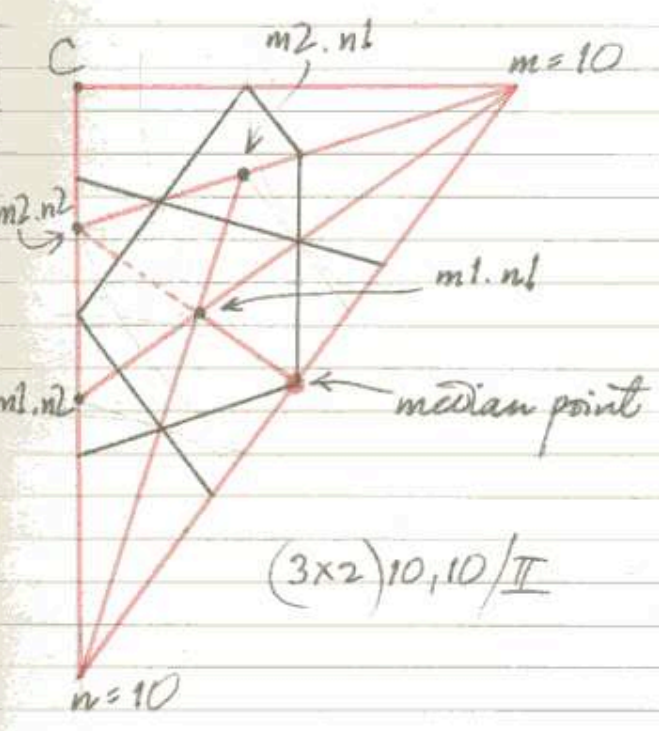 m2.n1
C
m=10
m2.n2
m1.n1
m1.n2
median point
(3×2)10,10/II
n=10